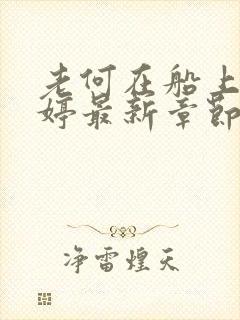 老何在船上
婷最新章节
净雷煌天